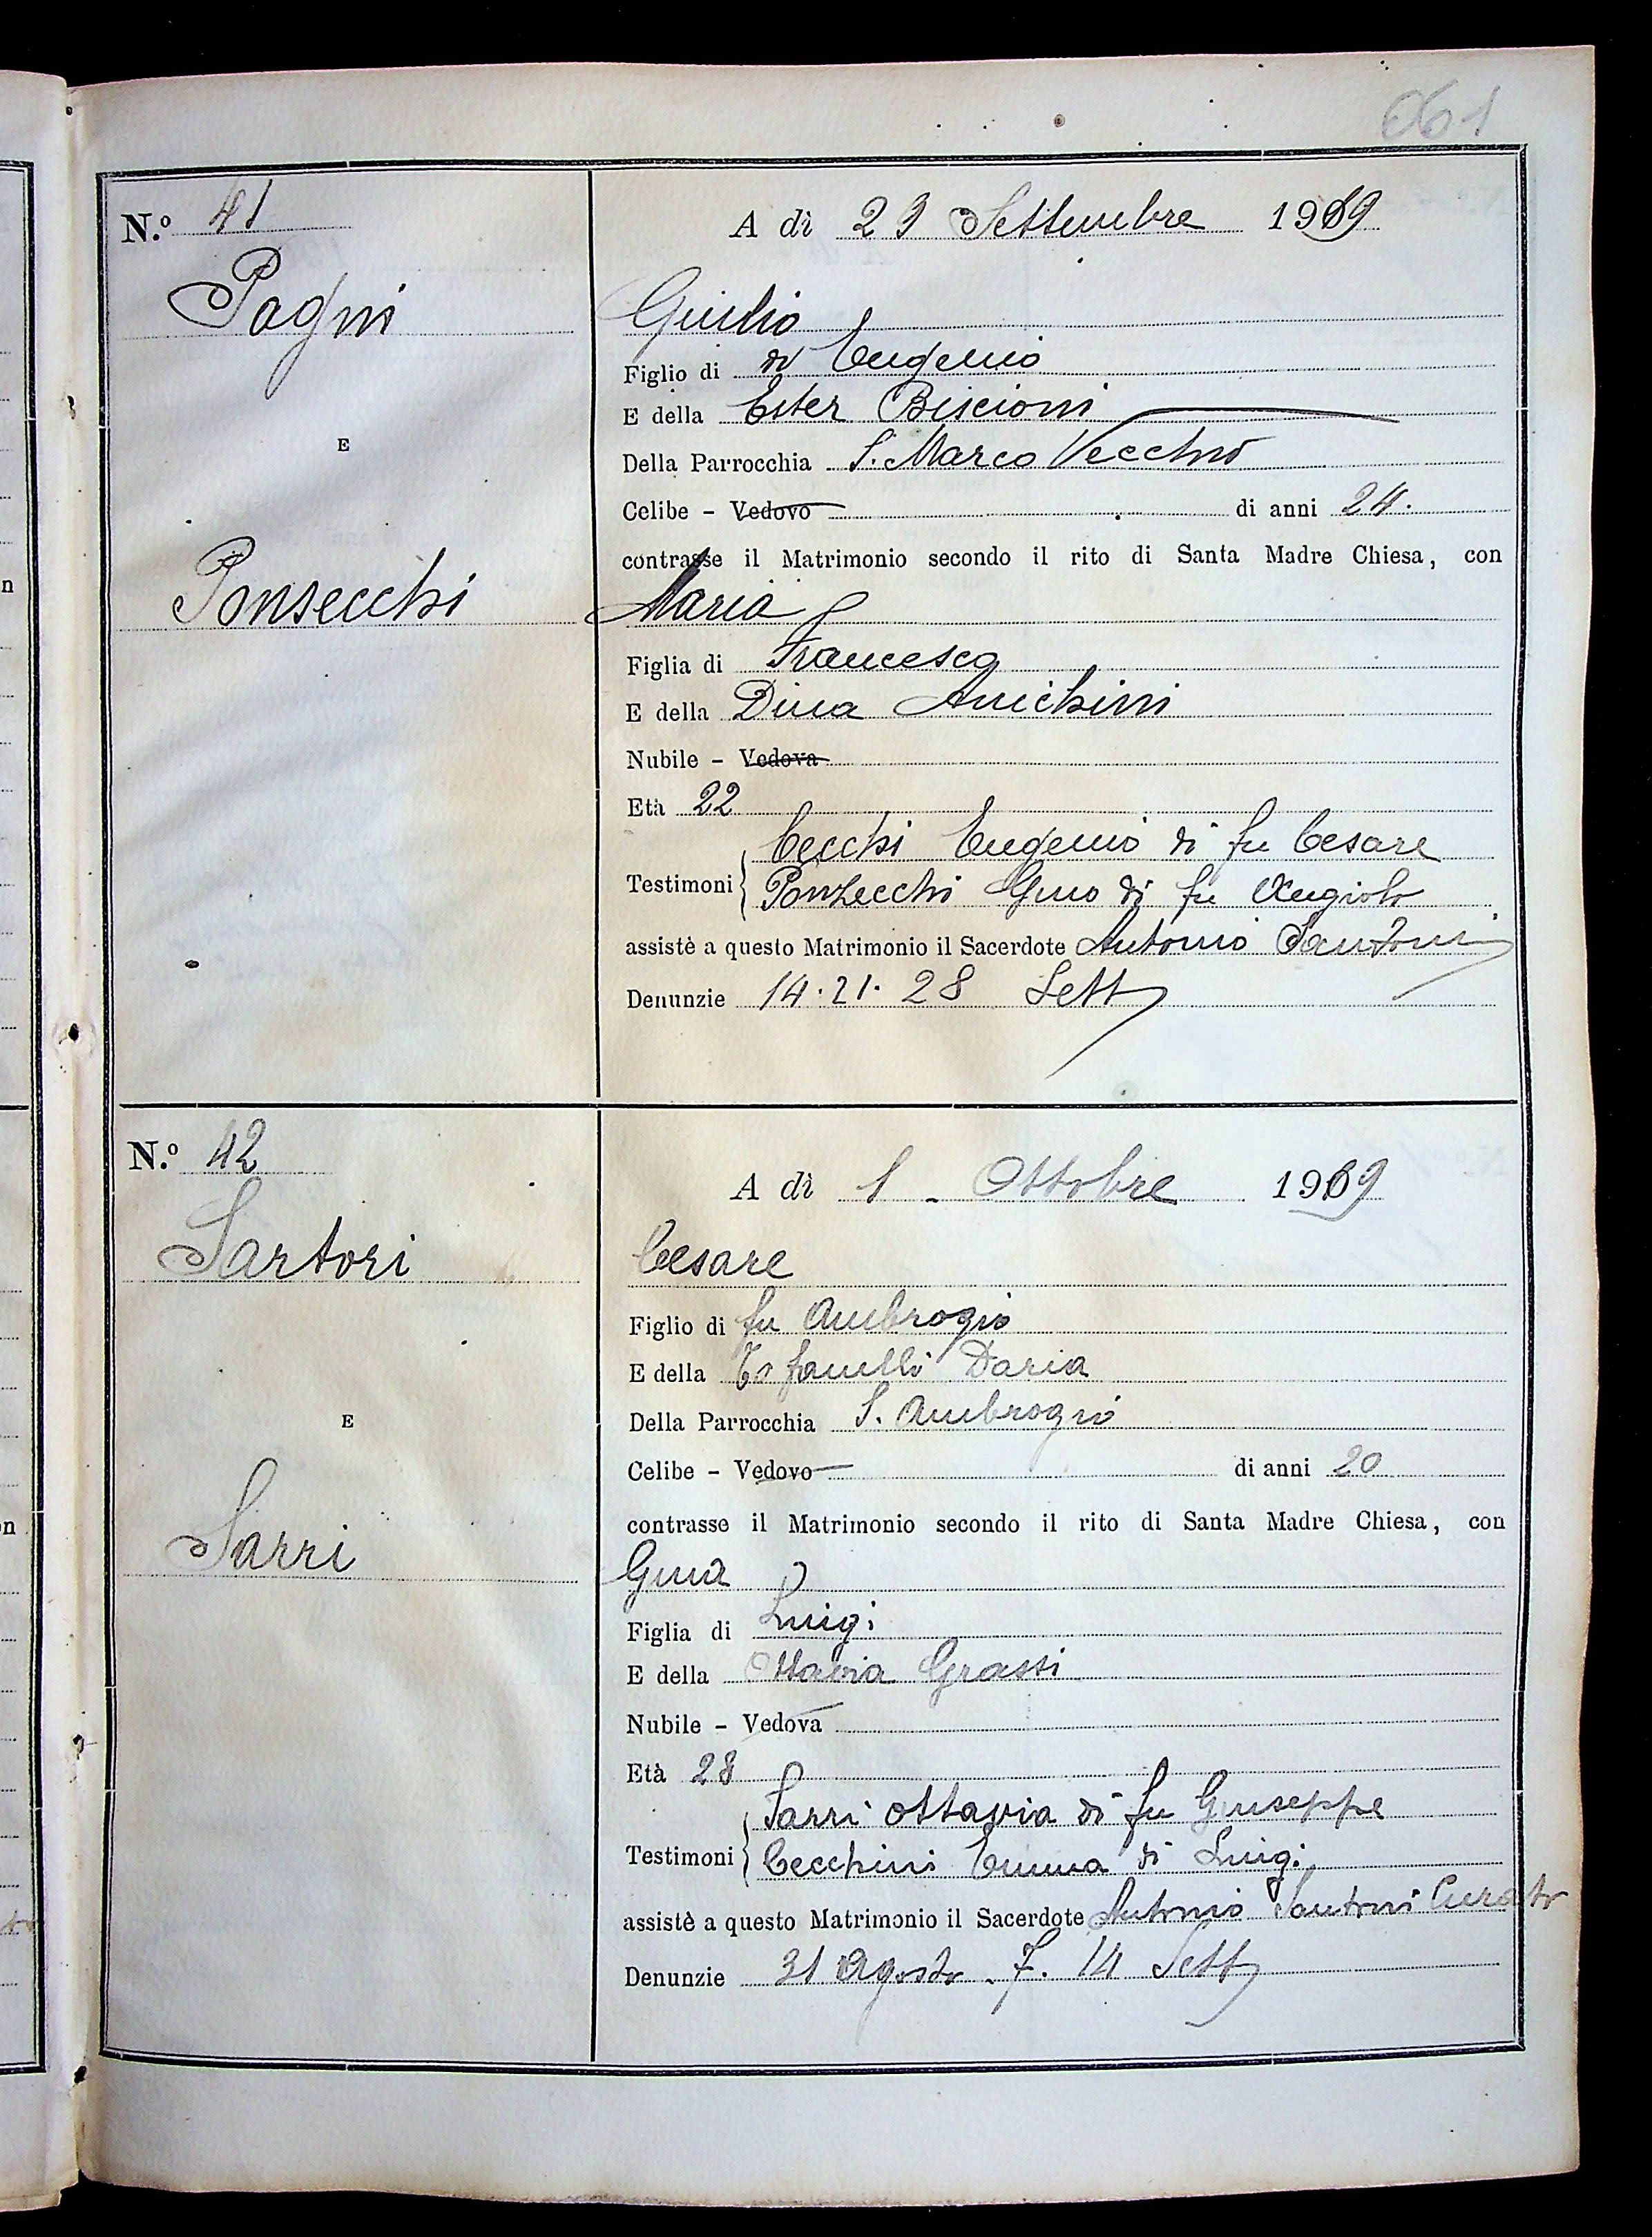 261
N.º 41
A dì 29 Settembre 1919
Pagni
Giulio
Figlio di di Eugenio
E della Ester Biscioni
E
Della Parrocchia S. Marco Vecchio
Celibe - Vedovo di anni 24.
contrasse il Matrimonio secondo il rito di Santa Madre Chiesa, con
Ponsecchi
Maria
Figlia di Francesco
E della Dina Anichini
Nubile - Vedova
Età 22
Cecchi Eugenio di fu Cesare
Testimoni Ponzecchi Gino di fu Angiolo
assistè a questo Matrimonio il Sacerdote Antonio Santoni
Denunzie 14. 21. 28 Sett
N.º 42
A dì 1 - Ottobre 1919
Sartori
Cesare
Figlio di fu Ambrogio
E della Tofanelli Daria
E
Della Parrocchia S. Ambrogio
Celibe - Vedovo di anni 20
contrasse il Matrimonio secondo il rito di Santa Madre Chiesa, con
Sarri
Gina
Figlia di Luigi
E della Ottavia Grassi
Nubile - Vedova
Età 28
Sarri Ottavia di fu Giuseppe
Testimoni Cecchini Emma di Luigi
assistè a questo Matrimonio il Sacerdote Antonio Santoni Curato
Denunzie 31 Agosto - 7. 14 Sett